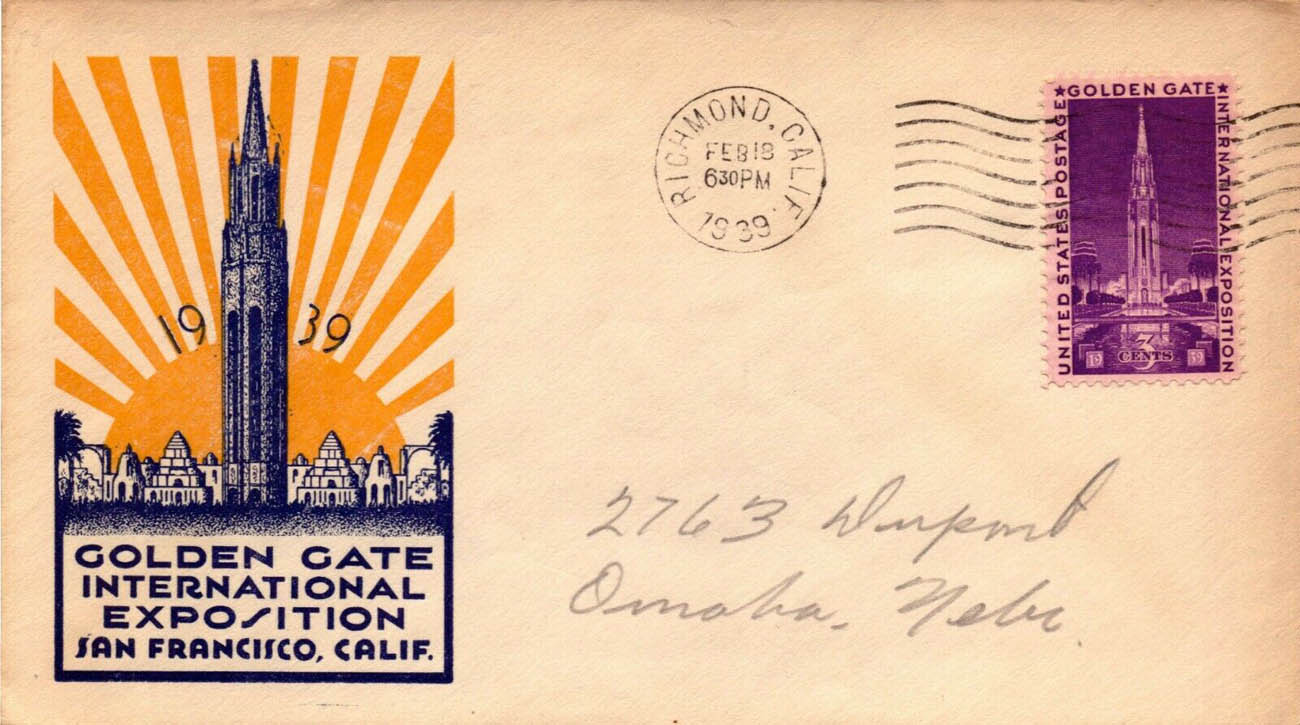 19 39
GOLDEN GATE
INTERNATIONAL
EXPOSITION
SAN FRANCISCO, CALIF.
RICHMOND, CALIF.
FEB 18
6 30 PM
1939
UNITED STATES POSTAGE
★GOLDEN GATE★
INTERNATIONAL EXPOSITION
19 3 CENTS 39
2763 Dupont
Omaha, Nebr.